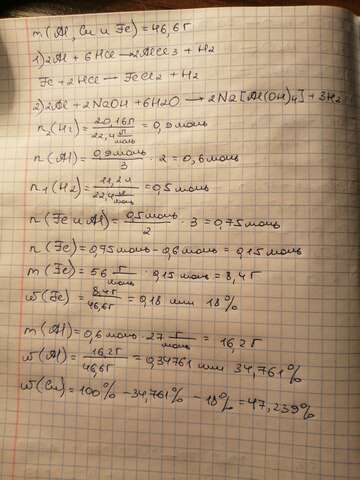 m(Al, Cu и Fe) = 46,6г
1) 2Al + 6HCl → 2AlCl3 + H2
Fe + 2HCl → FeCl2 + H2
2) 2Al + 2NaOH + 6H2O → 2Na[Al(OH)4] + 3H2
n2(H2) = 20,16г / 22,4 г/моль = 0,9 моль
n(Al) = 0,9 моль / 3 · 2 = 0,6 моль
n1(H2) = 11,2л / 22,4 л/моль = 0,5 моль
n(Fe и Al) = 0,5 моль / 2 · 3 = 0,75 моль
n(Fe) = 0,75 моль - 0,6 моль = 0,15 моль
m(Fe) = 56 г/моль · 0,15 моль = 8,4г
ω(Fe) = 8,4г / 46,6г = 0,18 или 18%
m(Al) = 0,6 моль · 27 г/моль = 16,2г
ω(Al) = 16,2г / 46,6г = 0,34761 или 34,761%
ω(Cu) = 100% - 34,761% - 18% = 47,239%